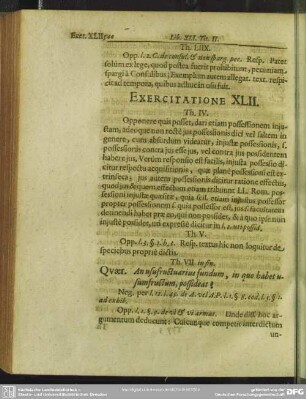 Exerc. XLII.
Lib. XLI. Tit. II.
Th. LIIX.
Opp. l. 2. C. de consul. & non sparg. pec. Resp. Patet
solum ex lege, quod postea fuerit prohibitum, pecuniam
spargi à Consulibus; Exemplum autem allegat. text. respi-
cit ad tempora, quibus adhuc in usu fuit.
EXERCITATIONE XLII.
Th. IV.
Opponere quis posset, dari etiam possessionem inju-
stam, adeoque non rectè jus possessionis dici vel saltem in
genere, cum absurdum videatur, injuste possessionis, s.
possessionis contra jus esse jus, vel contra jus possidentem
habere jus. Verùm responsio est facilis, injusta possessio di-
citur respectu acquisitionis, quæ planè possessioni est ex-
trinseca; jus autem possessionis dicitur ratione effectus,
quod jus & quem effectum etiam tribuunt LL. Rom. pos-
sessioni injuste quæsitæ, quia scil. etiam injustus possessor
propter possessionem s. quia possessor est, jus s. facultatem
detinendi habet præ eo, qui non possidet, & à quo ipse non
injuste possidet, uti expresse dicitur in
Th. V.
Opp. l. 3. §. 2. h. t. Resp. textus hic non loquitur de
speciebus propriè dictis.
Th. VII. in fin.
Quær. An usufructuarius fundum, in quo habet u-
sumfructum, possideat?
Neg. per l. 12. l. 49. de A. vel A. P. l. 1. §. 8. eod. l. 5. §. 1.
ad exhib.
Opp. l. 3. §. de vi & vi armat. Unde dissl. hoc ar-
gumentum deducunt: Cuicunque competit interdictum
un-